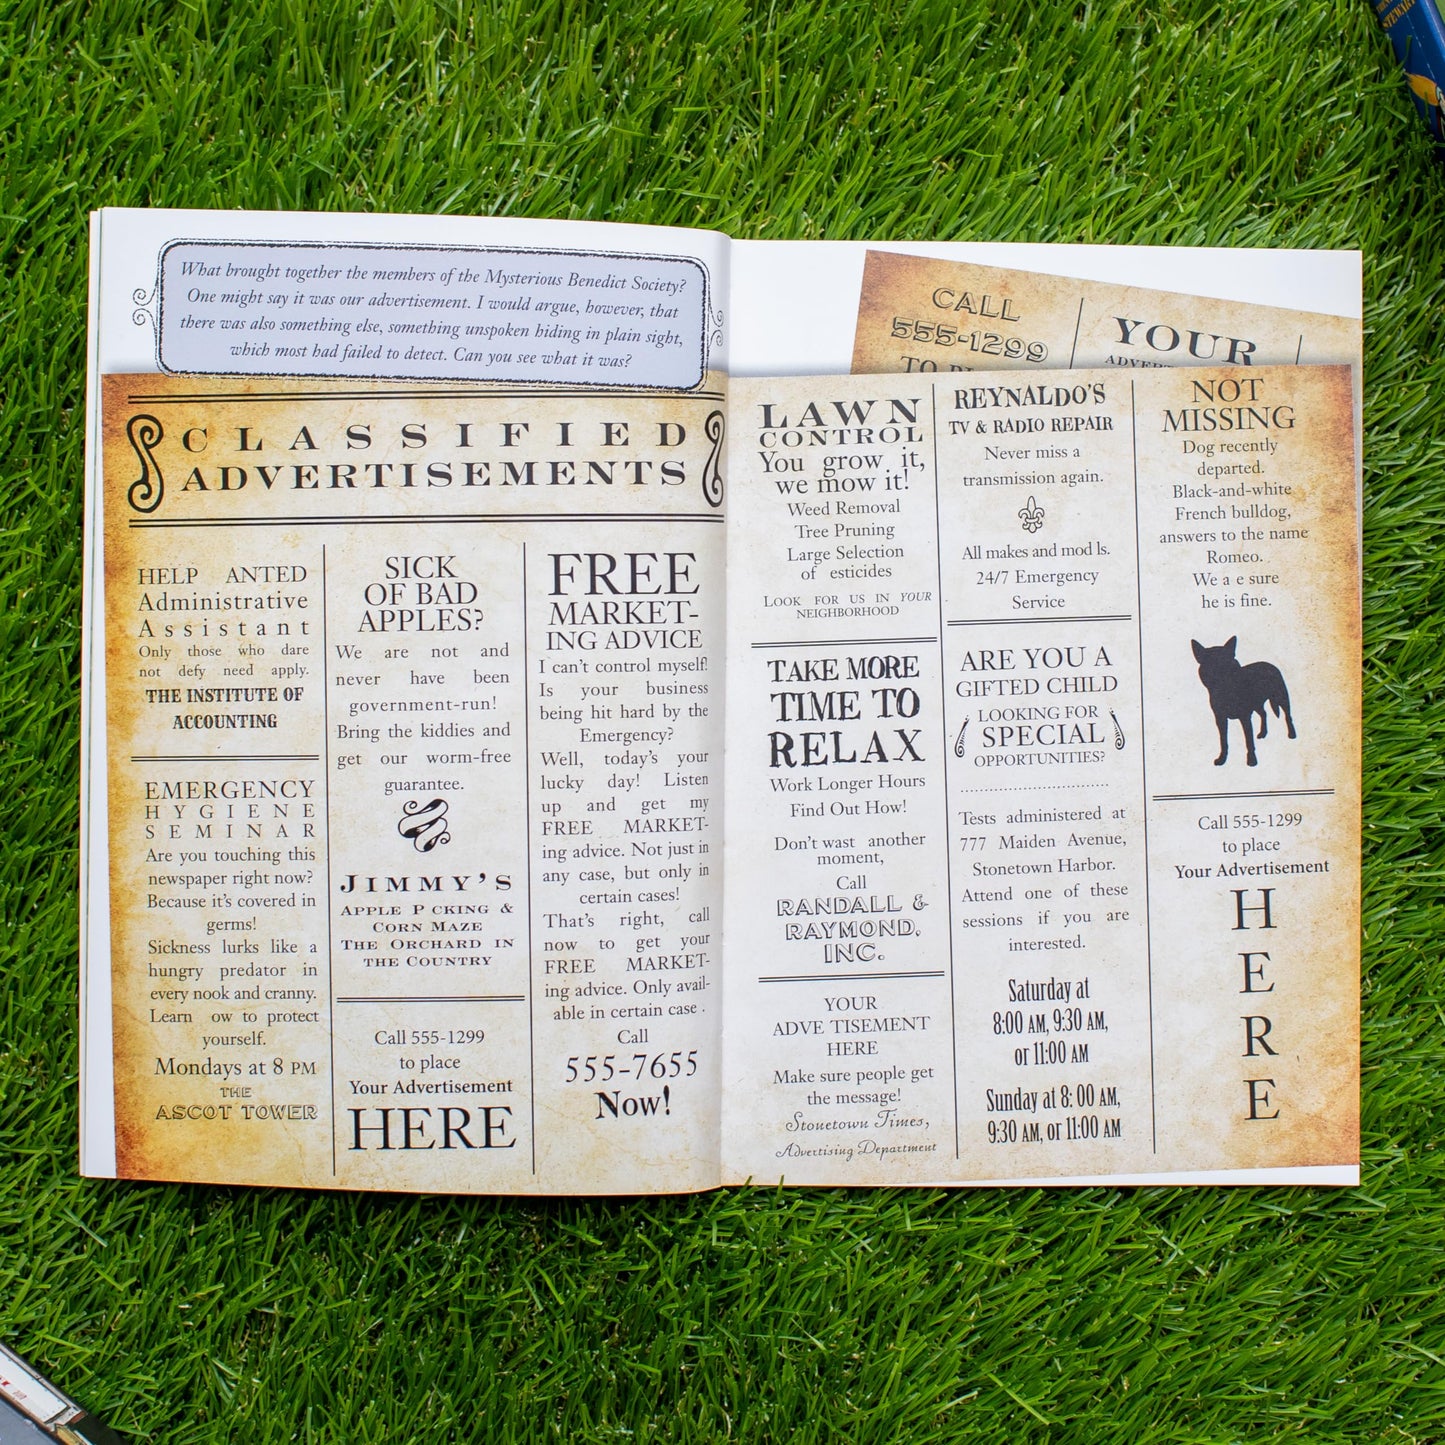 What brought together the members of the Mysterious Benedict Society?
One might say it was our advertisement. I would argue, however, that
there was also something else, something unspoken hiding in plain sight,
which most had failed to detect. Can you see what it was?
CLASSIFIED
ADVERTISEMENTS
HELP ANTED
Administrative
Assistant
Only those who dare
not defy need apply.
THE INSTITUTE OF
ACCOUNTING
EMERGENCY
HYGIENE
SEMINAR
Are you touching this
newspaper right now?
Because it's covered in
germs!
Sickness lurks like a
hungry predator in
every nook and cranny.
Learn ow to protect
yourself.
Mondays at 8 PM
THE
ASCOT TOWER
SICK
OF BAD
APPLES?
We are not and
never have been
government-run!
Bring the kiddies and
get our worm-free
guarantee.
JIMMY'S
APPLE P CKING &
CORN MAZE
THE ORCHARD IN
THE COUNTRY
Call 555-1299
to place
Your Advertisement
HERE
FREE
MARKET-
ING ADVICE
I can't control myself!
Is your business
being hit hard by the
Emergency?
Well, today's your
lucky day! Listen
up and get my
FREE MARKET-
ing advice. Not just in
any case, but only in
certain cases!
That's right, call
now to get your
FREE MARKET-
ing advice. Only avail-
able in certain case .
Call
555-7655
Now!
LAWN
CONTROL
You grow it,
we mow it!
Weed Removal
Tree Pruning
Large Selection
of esticides
LOOK FOR US IN YOUR
NEIGHBORHOOD
TAKE MORE
TIME TO
RELAX
Work Longer Hours
Find Out How!
Don't wast another
moment,
Call
RANDALL &
RAYMOND,
INC.
YOUR
ADVE TISEMENT
HERE
Make sure people get
the message!
Stonetown Times,
Advertising Department
REYNALDO'S
TV & RADIO REPAIR
Never miss a
transmission again.
All makes and mod ls.
24/7 Emergency
Service
ARE YOU A
GIFTED CHILD
LOOKING FOR
SPECIAL
OPPORTUNITIES?
Tests administered at
777 Maiden Avenue,
Stonetown Harbor.
Attend one of these
sessions if you are
interested.
Saturday at
8:00 AM, 9:30 AM,
or 11:00 AM
Sunday at 8: 00 AM,
9:30 AM, or 11:00 AM
NOT
MISSING
Dog recently
departed.
Black-and-white
French bulldog,
answers to the name
Romeo.
We a e sure
he is fine.
Call 555-1299
to place
Your Advertisement
H
E
R
E
CALL
555-1299
YOUR
STEWART